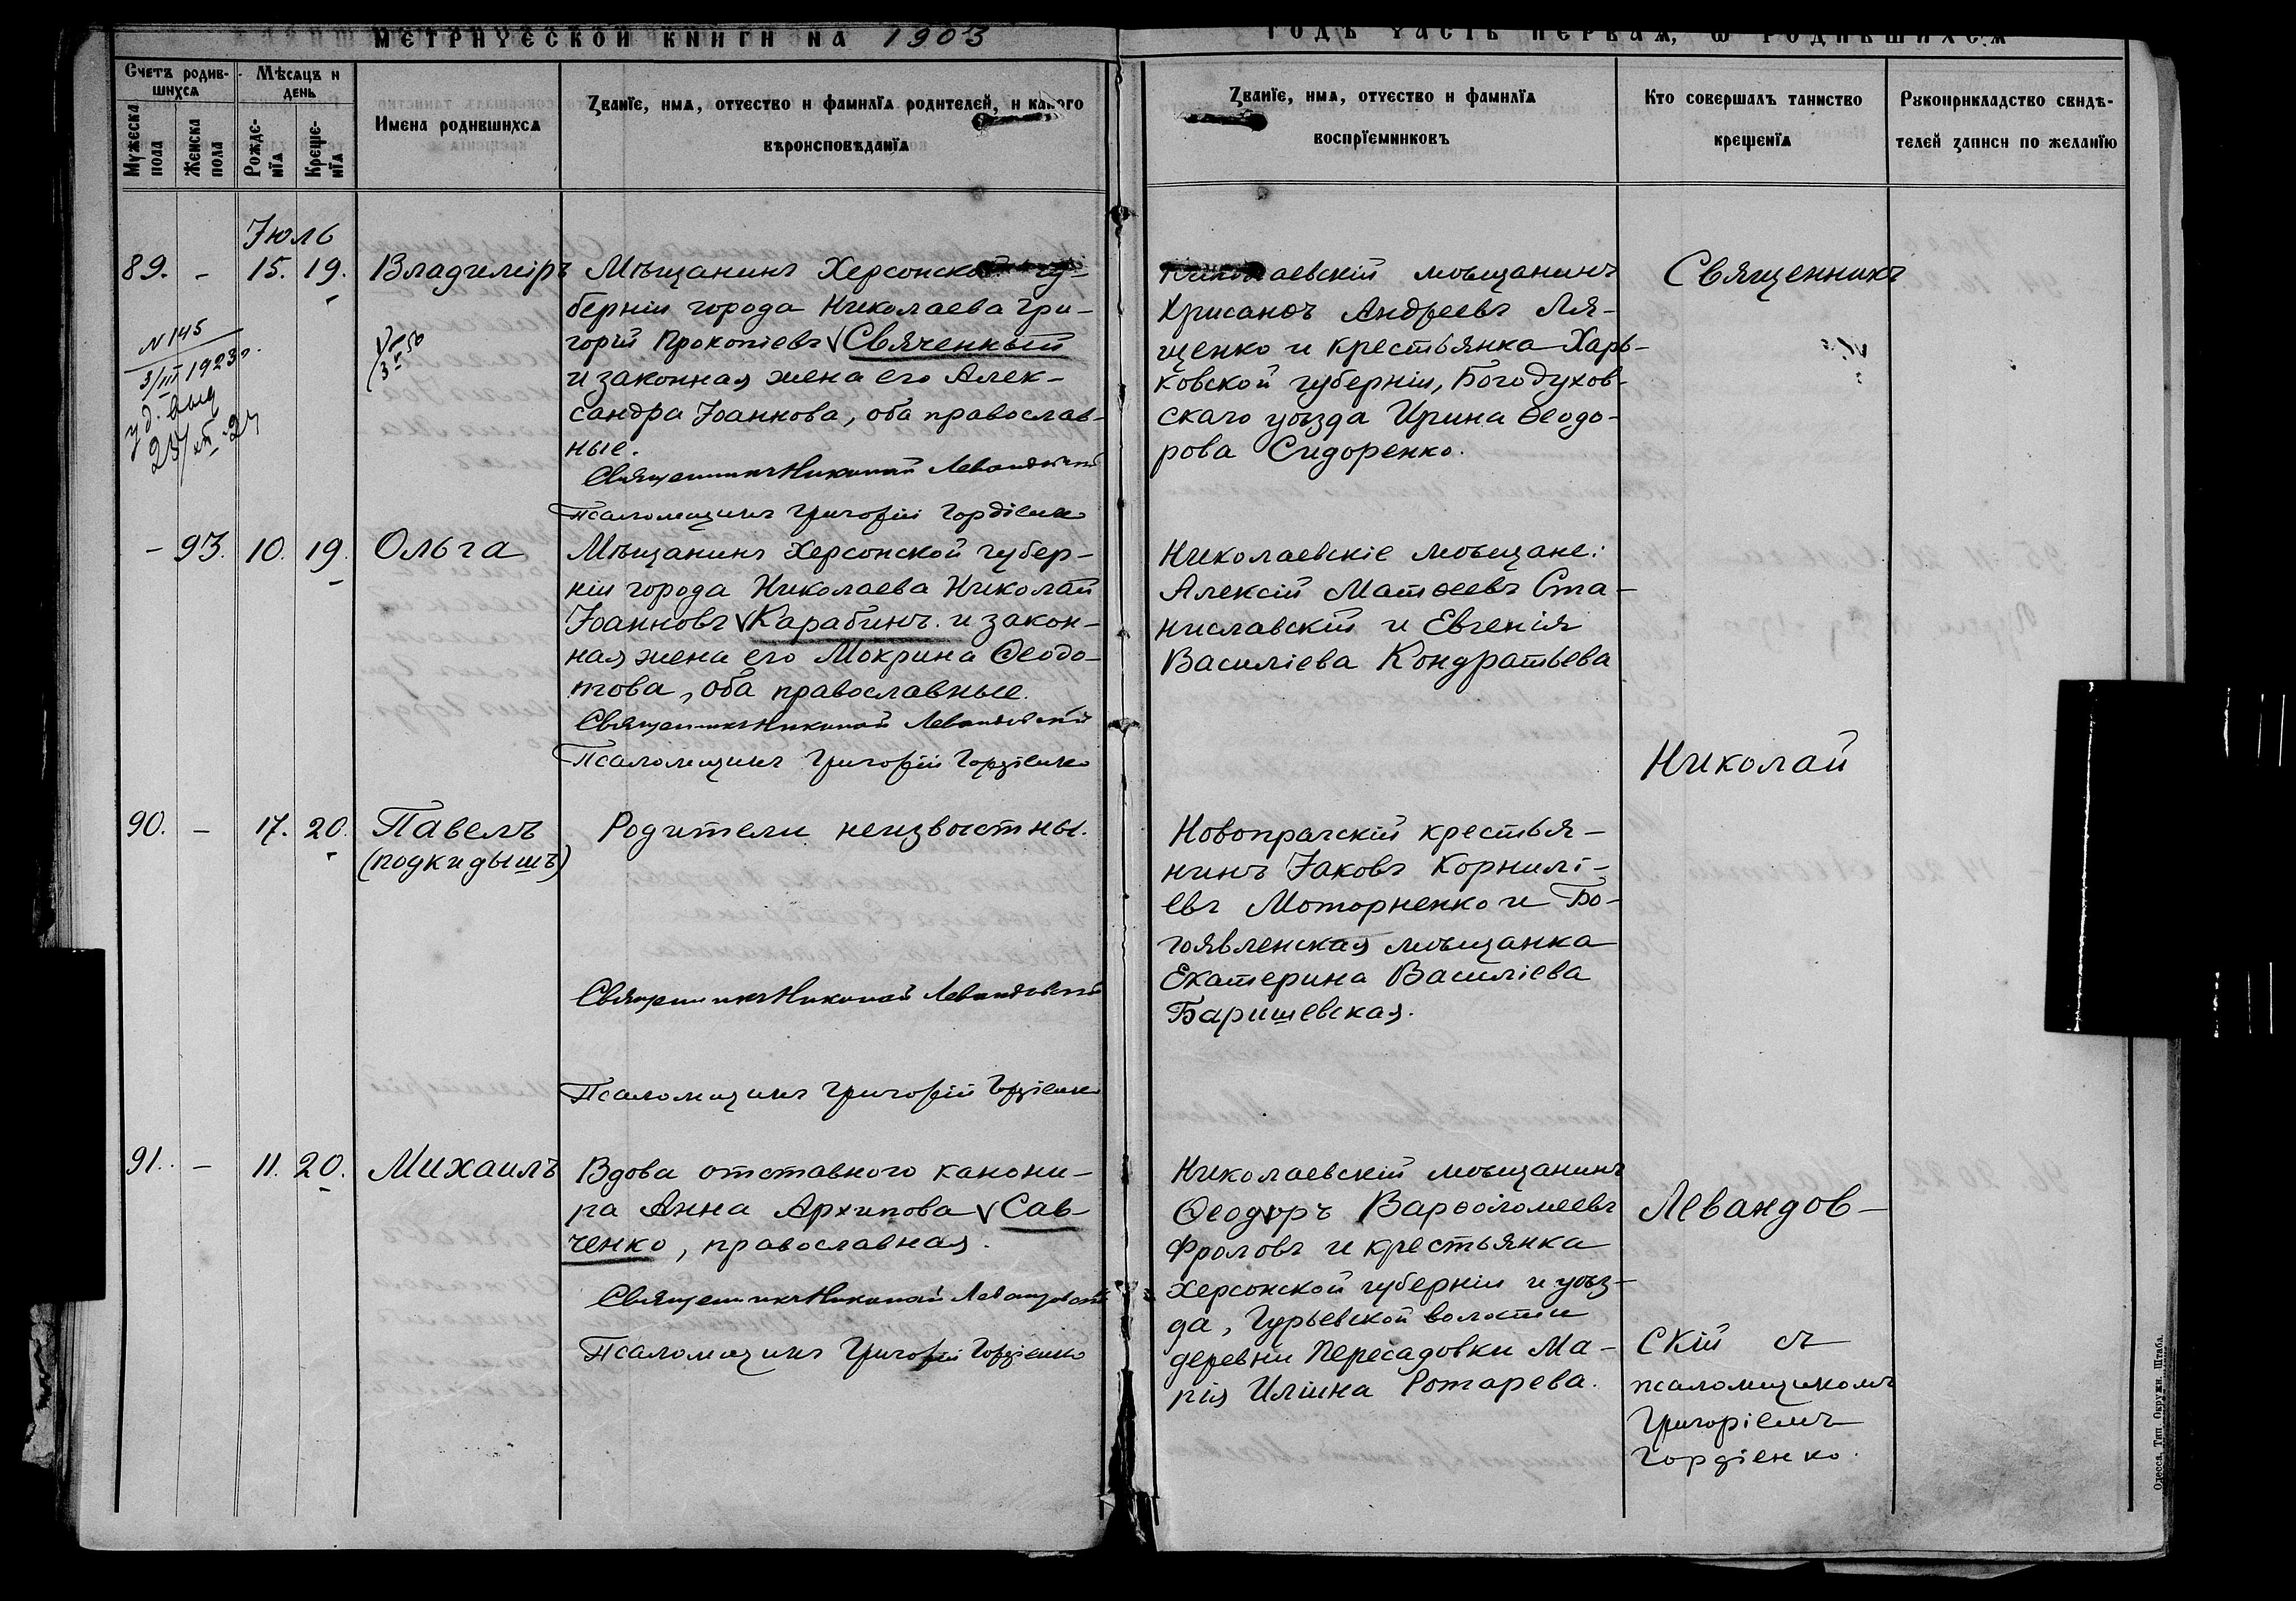 МЕТРИЧЕСКОЙ КНИГИ НА 1903
ГОДЪ ЧАСТЬ ПЕРВАЯ, Ѡ РОДИВШИХСЯ
Счетъ родив-
шихся
Мужеска
пола
Женска
пола
Мѣсяцъ и
день
Рожде-
нїя
Креще-
нїя
Имена родившихся
Званїе, имя, отчество и фамилїя родителей, и какого
вѣроисповѣданїя
Званїе, имя, отчество и фамилїя
воспрїемниковъ
Кто совершалъ таинство
крещенїя
Рукоприкладство свидѣ-
телей записи по желанїю
Іюль
89. - 15. 19. Владиміръ
№ 145
3/III 1923 г.
уд. выд
Мѣщанинъ Херсонской гу-
берніи города Николаева Гри-
горій Прокопіевъ Свяченный
и законная жена его Алек-
сандра Іоаннова, оба православ-
ные.
Священникъ Николай Левандовскій
Псаломщикъ Григорій Гордіенко
Николаевскій мѣщанинъ
Хрисанѳъ Андреевъ Ля-
щенко и крестьянка Харь-
ковской губерніи, Богодухов-
скаго уѣзда Ирина Ѳеодо-
рова Сидоренко.
Священникъ
- 93. 10. 19. Ольга
Мѣщанинъ Херсонской губер-
ніи города Николаева Николай
Іоанновъ Карабинъ и закон-
ная жена его Мокрина Ѳеодо-
това, оба православные.
Священникъ Николай Левандовскій
Псаломщикъ Григорій Гордіенко
Николаевскіе мѣщане:
Алексій Матѳеевъ Ста-
ниславскій и Евгенія
Василіева Кондратьева
Николай
90. - 17. 20. Павелъ
(подкидышъ)
Родители неизвѣстны.
Священникъ Николай Левандовскій
Псаломщикъ Григорій Гордіенко
Новопражскій крестья-
нинъ Іаковъ Корнилі-
евъ Моторненко и Бо-
гоявленская мѣщанка
Екатерина Василіева
Баришевская.
91. - 11. 20. Михаилъ
Вдова отставного канони-
ра Анна Архипова Сав-
ченко, православная.
Священникъ Николай Левандовскій
Псаломщикъ Григорій Гордіенко
Николаевскій мѣщанинъ
Ѳеодоръ Варѳоломеевъ
Фроловъ и крестьянка
Херсонской губерніи и уѣз-
да, Гурьевской волости
деревни Пересадовки Ма-
рія Иліина Ротарева.
Левандов-
скій съ
псаломщикомъ
Григоріемъ
Гордіенко.
Одесса, Тип. Окружн. Штаба.